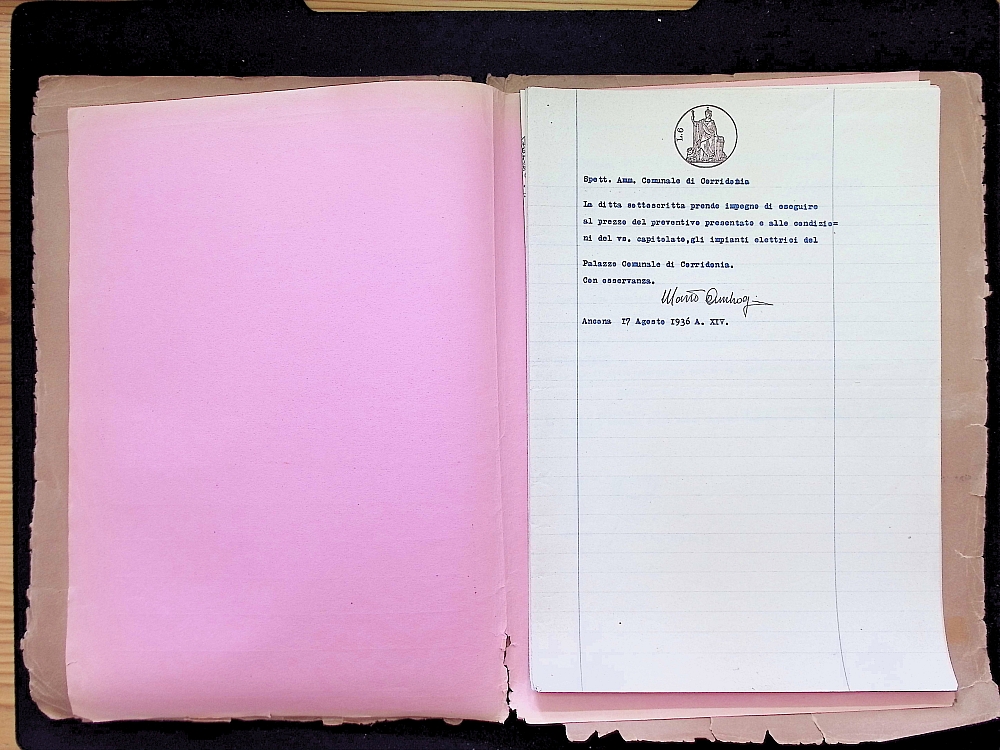 L.6
Spett. Amm. Comunale di Corridonia
La ditta sottoscritta prende impegno di eseguire
al prezzo del preventivo presentato e alle condizio=
ni del vs. capitolato,gli impianti elettrici del
Palazzo Comunale di Corridonia.
Con osservanza.
Ancona 17 Agosto 1936 A. XIV.